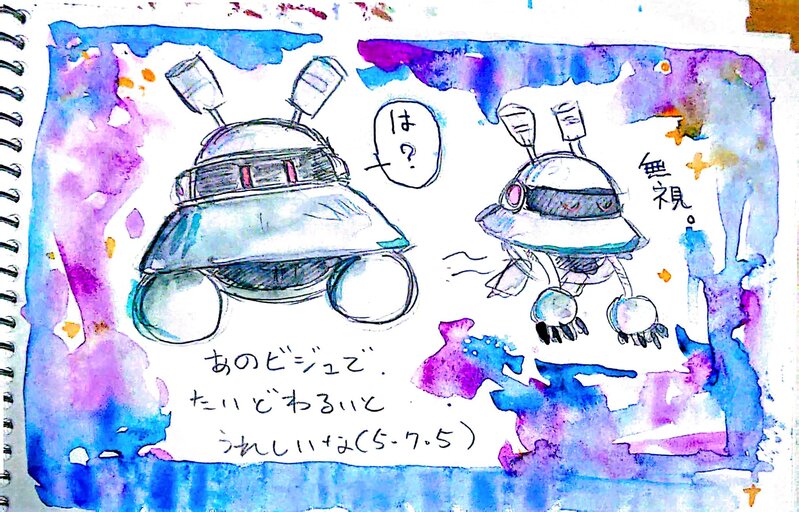 は?
無視。
あのビジュで、
たいどわるいと
うれしいな(5・7・5)